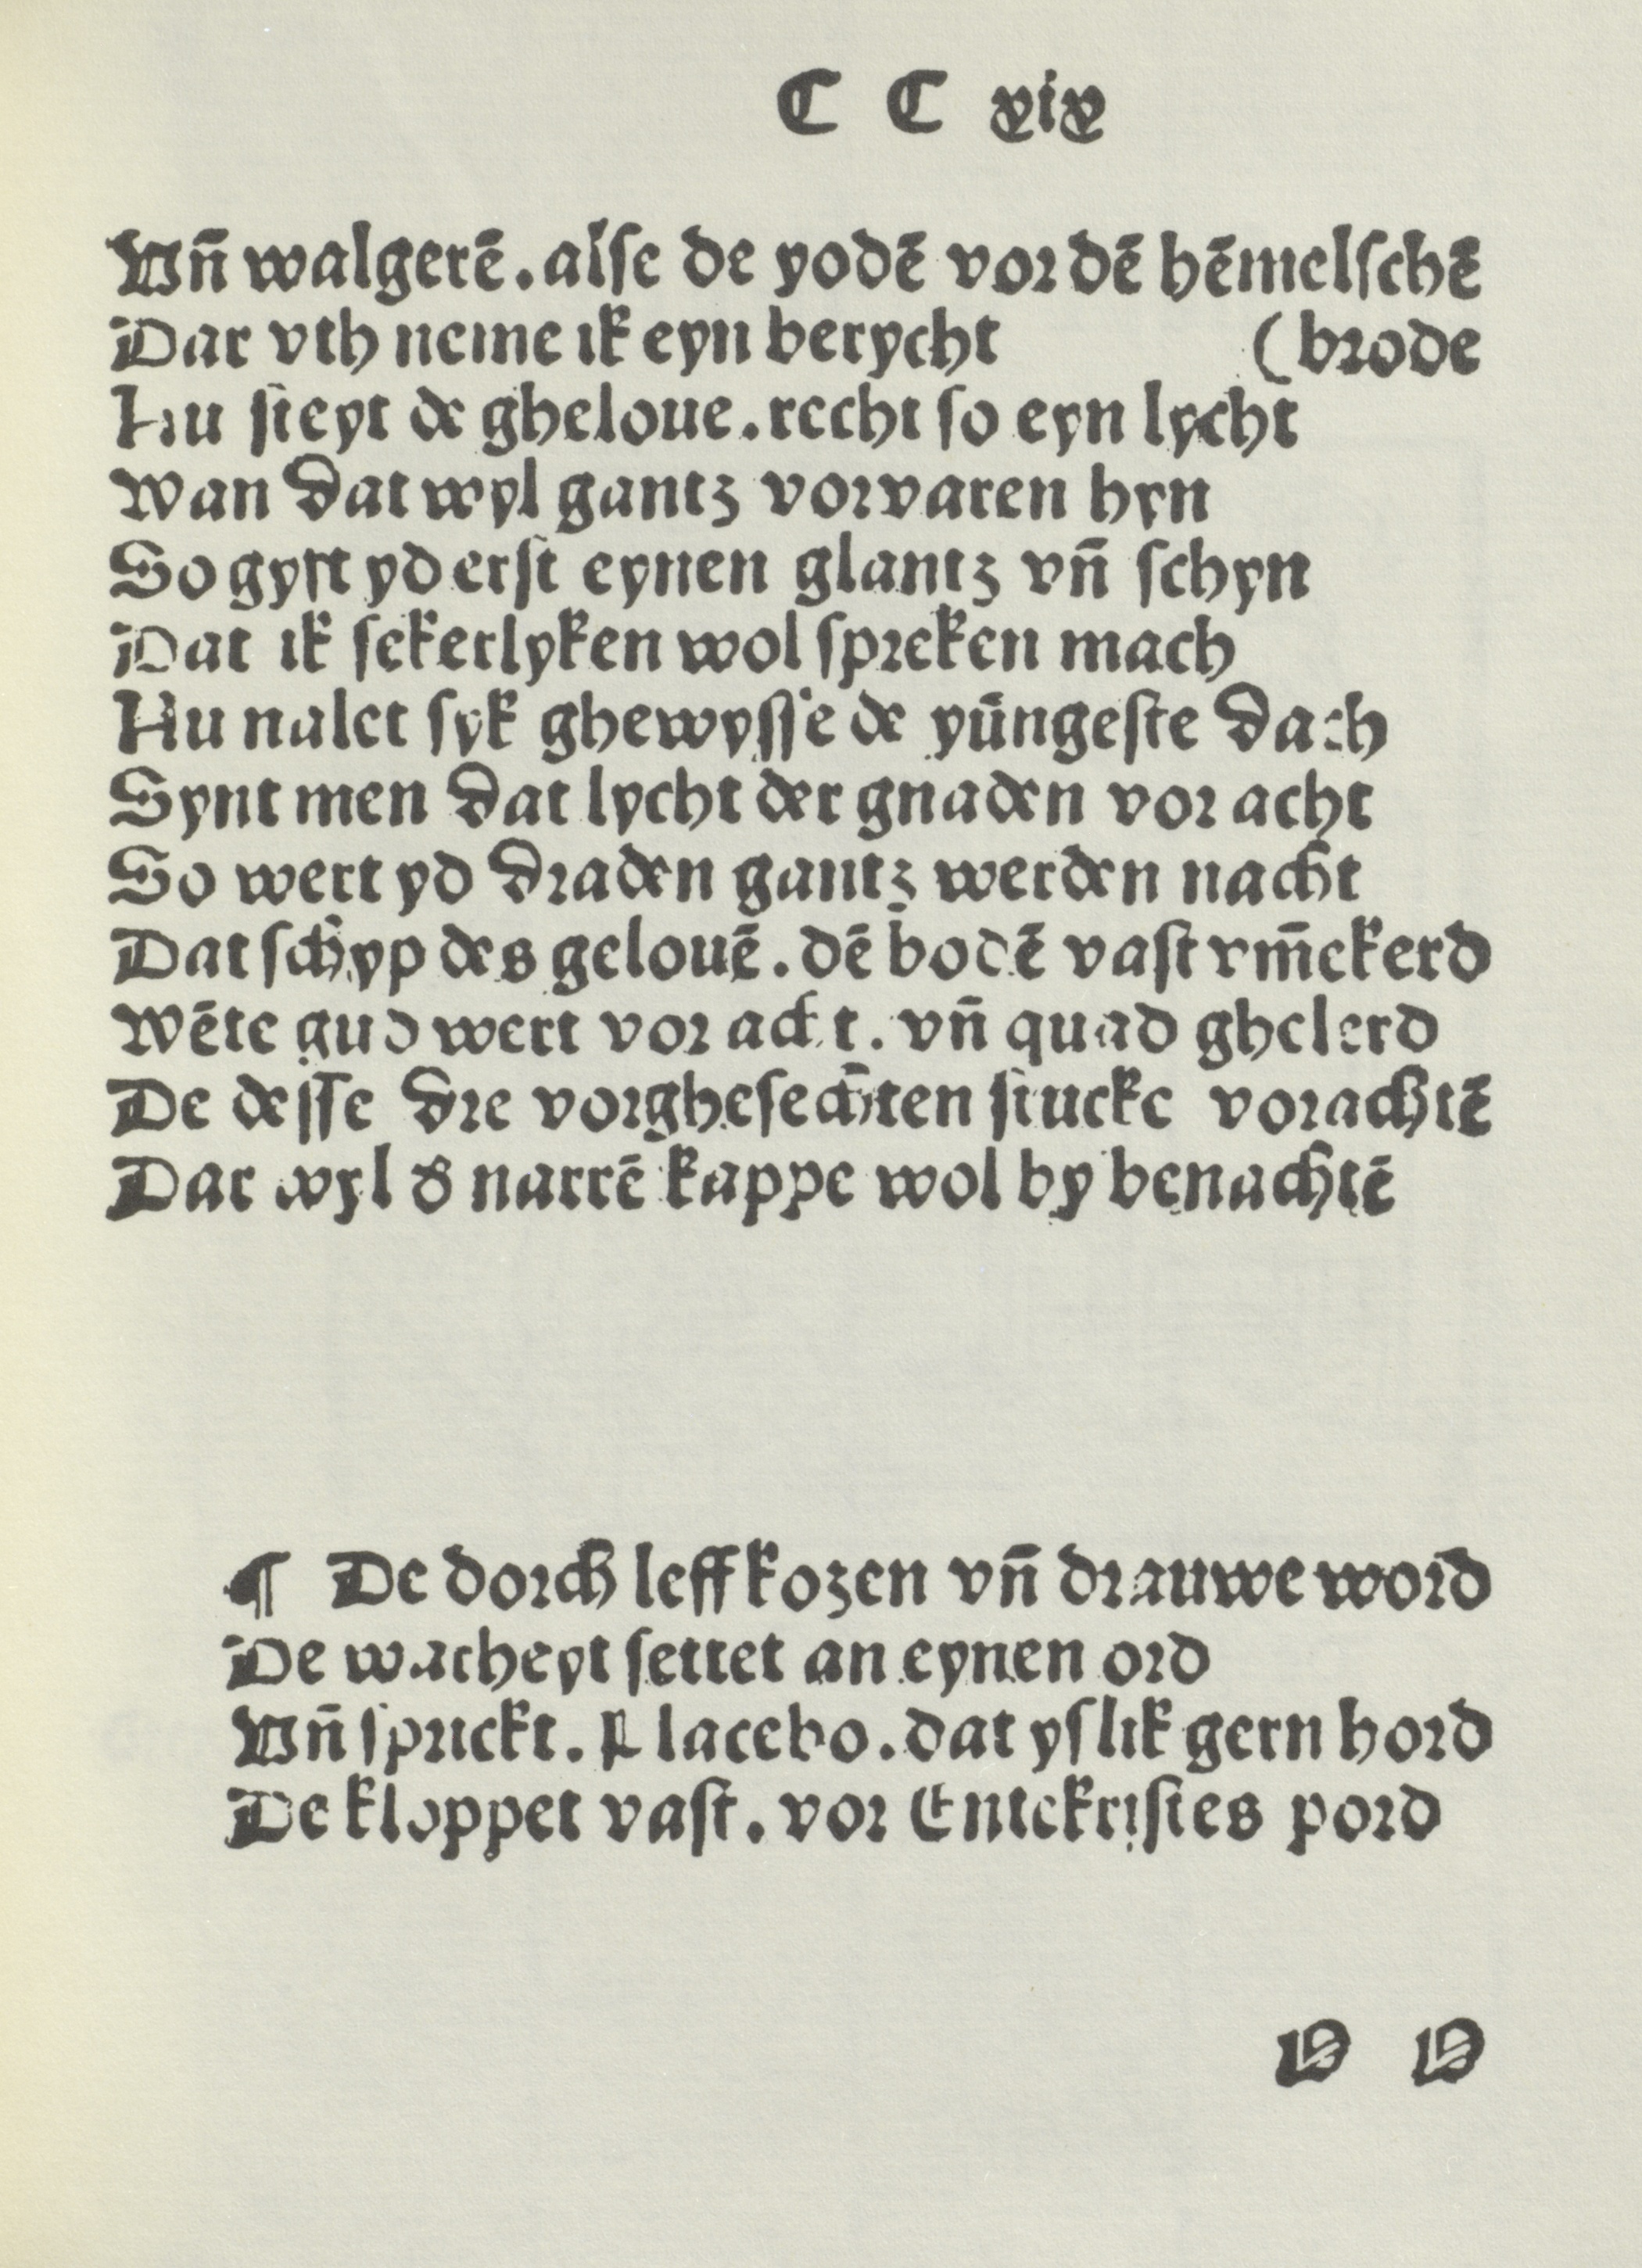 C C xix
Vñ walgerē. alse de yodē vor dē hēmelschē
Dar vth neme ik eyn berycht (brode
Nu steyt de gheloue. recht so eyn lycht
Wan dat wyl gantz vorvaren hyn
So gyft yd erst eynen glantz vñ schyn
Dat ik sekerlyken wol spreken mach
Nu nalet syk ghewysse de yūngeste dach
Synt men dat lycht der gnaden vor acht
So wert yd draden gantz werden nacht
Dat schyp des gelouē. dē bodē vast vm̄ekerd
Wēte gud wert vor acht. vñ quad ghelerd
De desse dre vorghesechten stucke vorachtē
Dar wyl d' narrē kappe wol by benachtē
¶ De dorch leffkozen vñ drauwe word
De wacheyt settet an eynen ord
Vñ sprickt. Placebo. dat yslik gern hord
De kloppet vast. vor Entekristes pord